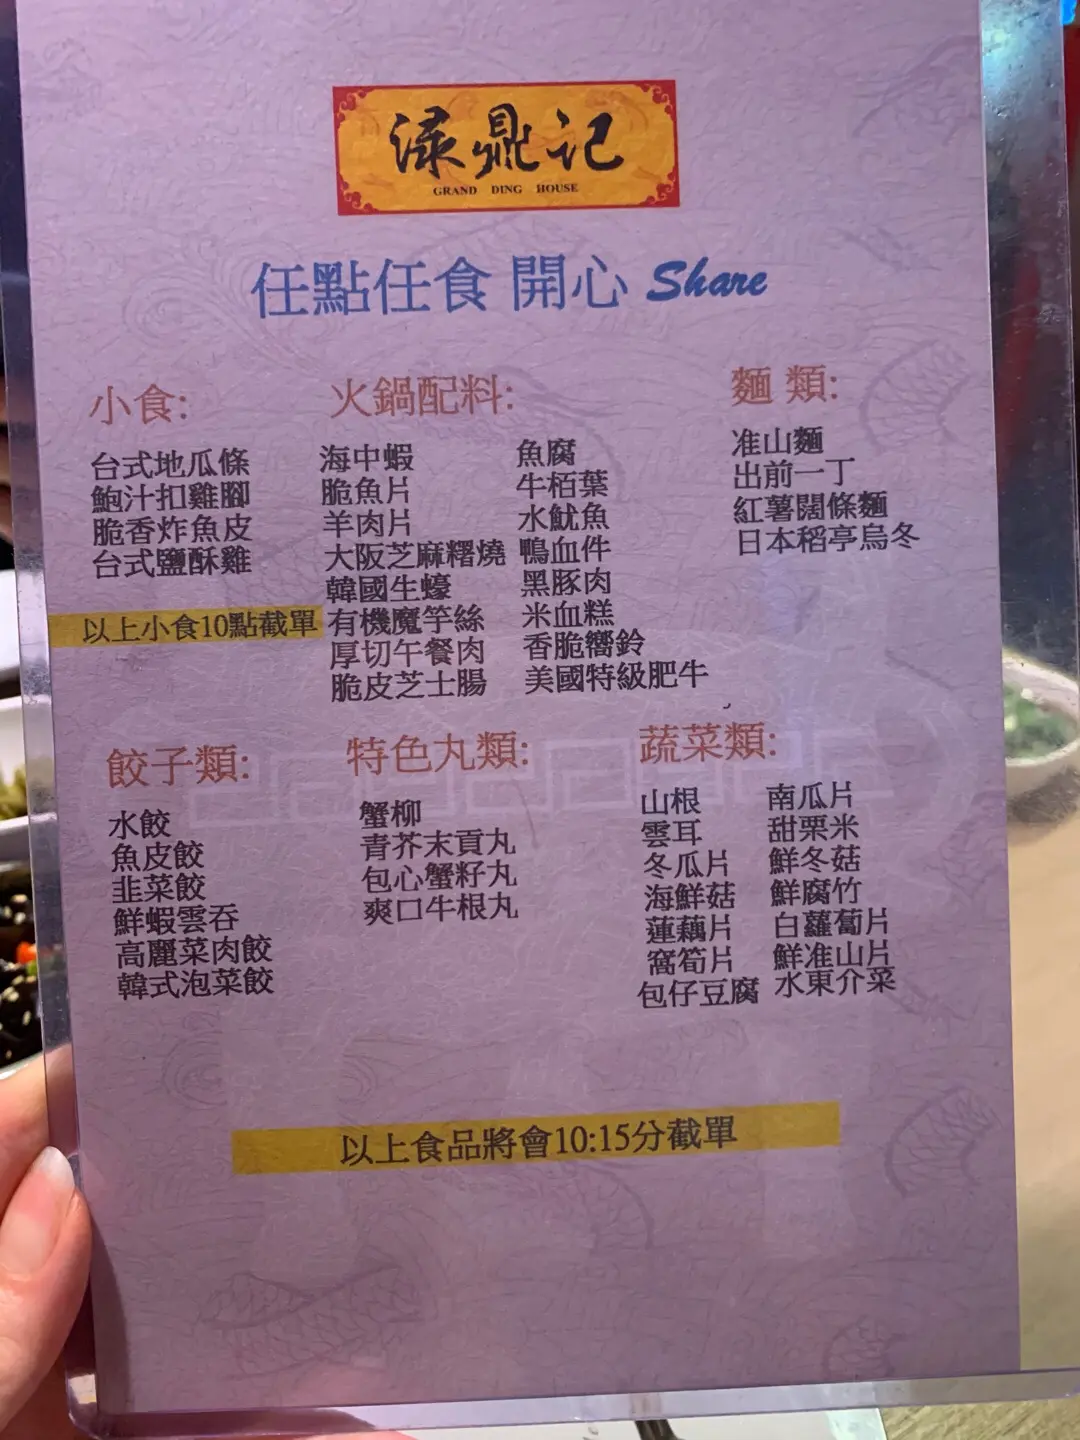 渌鼎记
GRAND DING HOUSE
任點任食 開心 Share
小食:
台式地瓜條
鮑汁扣雞腳
脆香炸魚皮
台式鹽酥雞
以上小食10點截單
火鍋配料:
海中蝦
脆魚片
羊肉片
大阪芝麻糬燒
韓國生蠔
有機魔芋絲
厚切午餐肉
脆皮芝士腸
魚腐
牛栢葉
水魷魚
鴨血件
黑豚肉
米血糕
香脆嚮鈴
美國特級肥牛
麵 類:
准山麵
出前一丁
紅薯闊條麵
日本稻亭烏冬
餃子類:
水餃
魚皮餃
韭菜餃
鮮蝦雲吞
高麗菜肉餃
韓式泡菜餃
特色丸類:
蟹柳
青芥末貢丸
包心蟹籽丸
爽口牛根丸
蔬菜類:
山根
雲耳
冬瓜片
海鮮菇
蓮藕片
窩筍片
包仔豆腐
南瓜片
甜粟米
鮮冬菇
鮮腐竹
白蘿蔔片
鮮准山片
水東介菜
以上食品將會10:15分截單